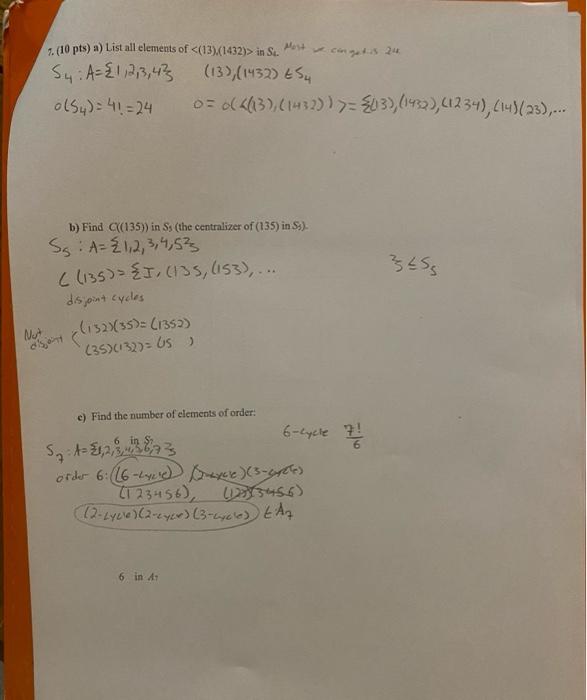 7. (10 pts) a) List all elements of <(13),(1432)> in S₄. Most we can get is 24
S₄ : A={1,2,3,4} (13),(1432) ∈ S₄
o(S₄)=4!=24 o= o(<(13),(1432)>)={(13),(1432),(1234),(14)(23),...
b) Find C((135)) in S₅ (the centralizer of (135) in S₅).
S₅ : A={1,2,3,4,5}
C(135)={I,(135,(153),... } ≤ S₅
disjoint cycles
Not disjoint (132)(35)=(1352)
(35)(132)=(15 )
c) Find the number of elements of order:
6 in S₇ 6-cycle 7!/6
S₇: A={1,2,3,4,5,6,7}
order 6: (6-cycle) (2-cycle)(3-cycle)
(123456), (12)(3456)
(2-cycle)(2-cycle)(3-cycle) ∈ A₇
6 in A₇